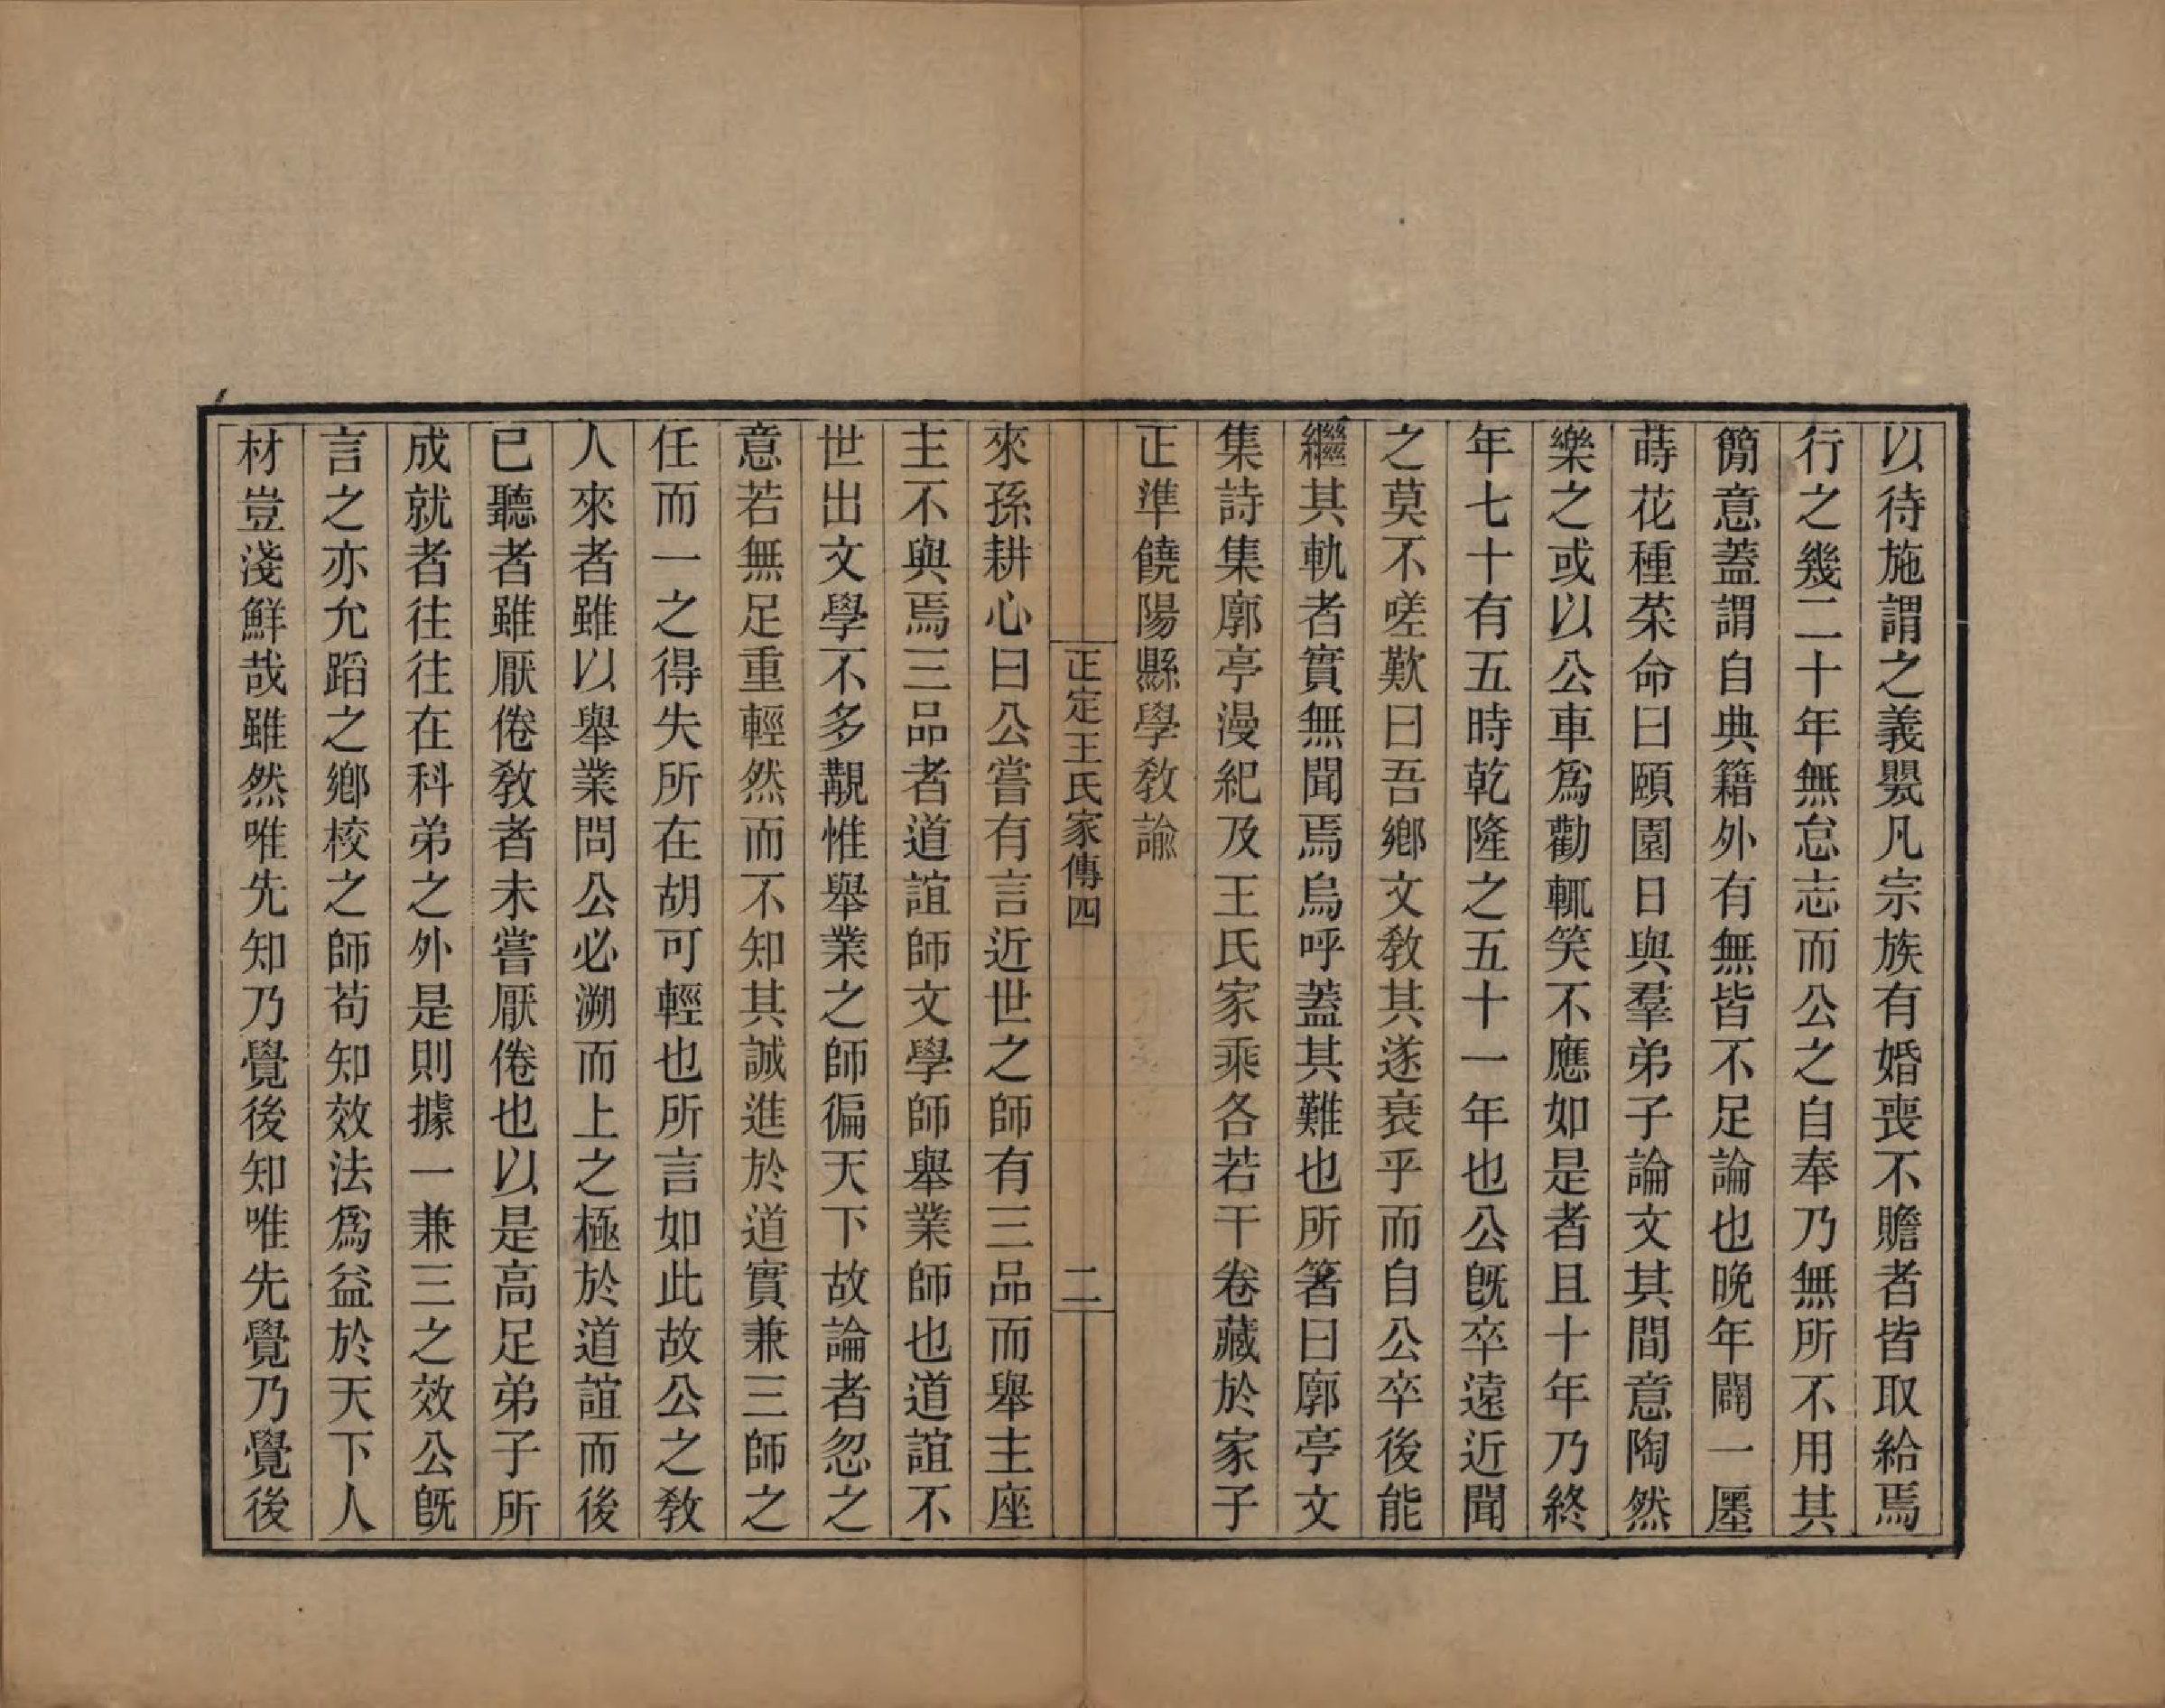 以待施謂之義㽀凡宗族有婚喪不贍者皆取給焉
行之幾二十年無怠志而公之自奉乃無所不用其
簡意蓋謂自典籍外有無皆不足論也晚年闢一廛
蒔花種菜命曰頤園日與羣弟子論文其間意陶然
樂之或以公車爲勸輒笑不應如是者且十年乃終
年七十有五時乾隆之五十一年也公旣卒遠近聞
之莫不嗟歎曰吾鄉文敎其遂衰乎而自公卒後能
繼其軌者實無聞焉烏呼蓋其難也所箸曰廓亭文
集詩集廓亭漫紀及王氏家乘各若干卷藏於家子
正準饒陽縣學敎諭
正定王氏家傳四
二
來孫耕心曰公嘗有言近世之師有三品而舉主座
主不與焉三品者道誼師文學師舉業師也道誼不
世出文學不多覯惟舉業之師徧天下故論者忽之
意若無足重輕然而不知其誠進於道實兼三師之
任而一之得失所在胡可輕也所言如此故公之敎
人來者雖以舉業問公必溯而上之極於道誼而後
已聽者雖厭倦敎者未嘗厭倦也以是高足弟子所
成就者往往在科弟之外是則據一兼三之效公旣
言之亦允蹈之鄉校之師苟知效法爲益於天下人
材豈淺鮮哉雖然唯先知乃覺後知唯先覺乃覺後